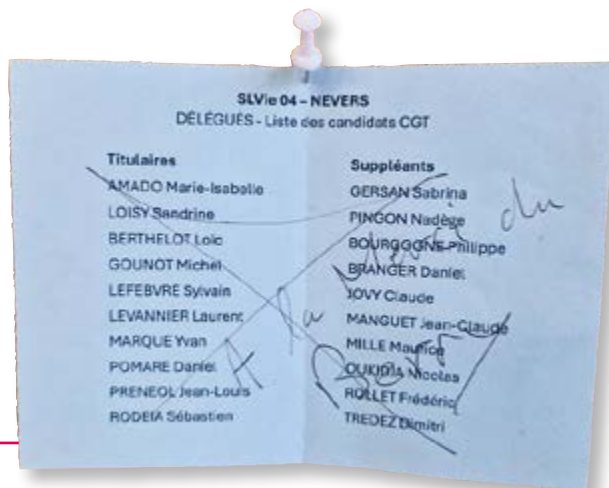 SLVie 04 – NEVERS
DÉLÉGUÉS - Liste des candidats CGT
Titulaires
AMADO Marie-Isabelle
LOISY Sandrine
BERTHELOT Loïc
GOUNOT Michel
LEFEBVRE Sylvain
LEVANNIER Laurent
MARQUE Yvan
POMARE Daniel
PRENEOL Jean-Louis
RODEIA Sébastien
Suppléants
GERSAN Sabrina
PINGON Nadège
BOURGOGNE Philippe
BRANGER Daniel
JOVY Claude
MANGUET Jean-Claude
MILLE Maurice
OUKIDJA Nicolas
ROLLET Frédéric
TREDEZ Dimitri
A la du